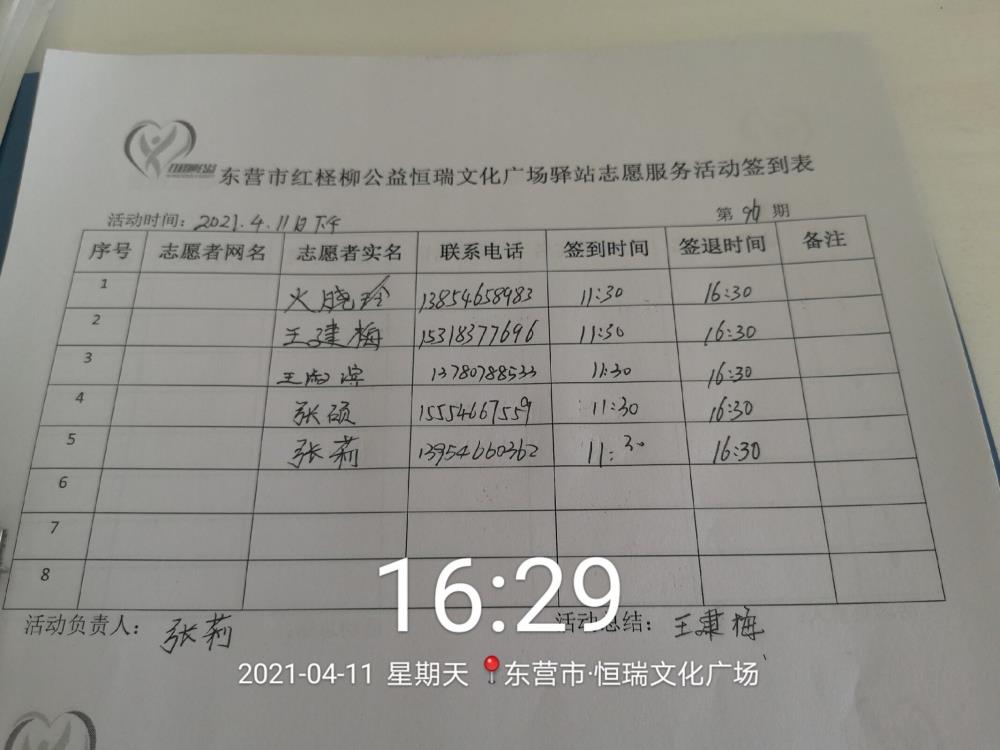 东营市红柽柳公益恒瑞文化广场驿站志愿服务活动签到表
活动时间：2021.4.11日下午 第96期
序号 志愿者网名 志愿者实名 联系电话 签到时间 签退时间 备注
1 火晓玲 13854658983 11:30 16:30
2 王建梅 15318377696 11:30 16:30
3 王 滨 13780788533 11:30 16:30
4 张硕 15554667559 11:30 16:30
5 张莉 13954660362 11:30 16:30
6
7
8
16:29
活动负责人：张莉 活动总结：王建梅
2021-04-11 星期天 东营市·恒瑞文化广场